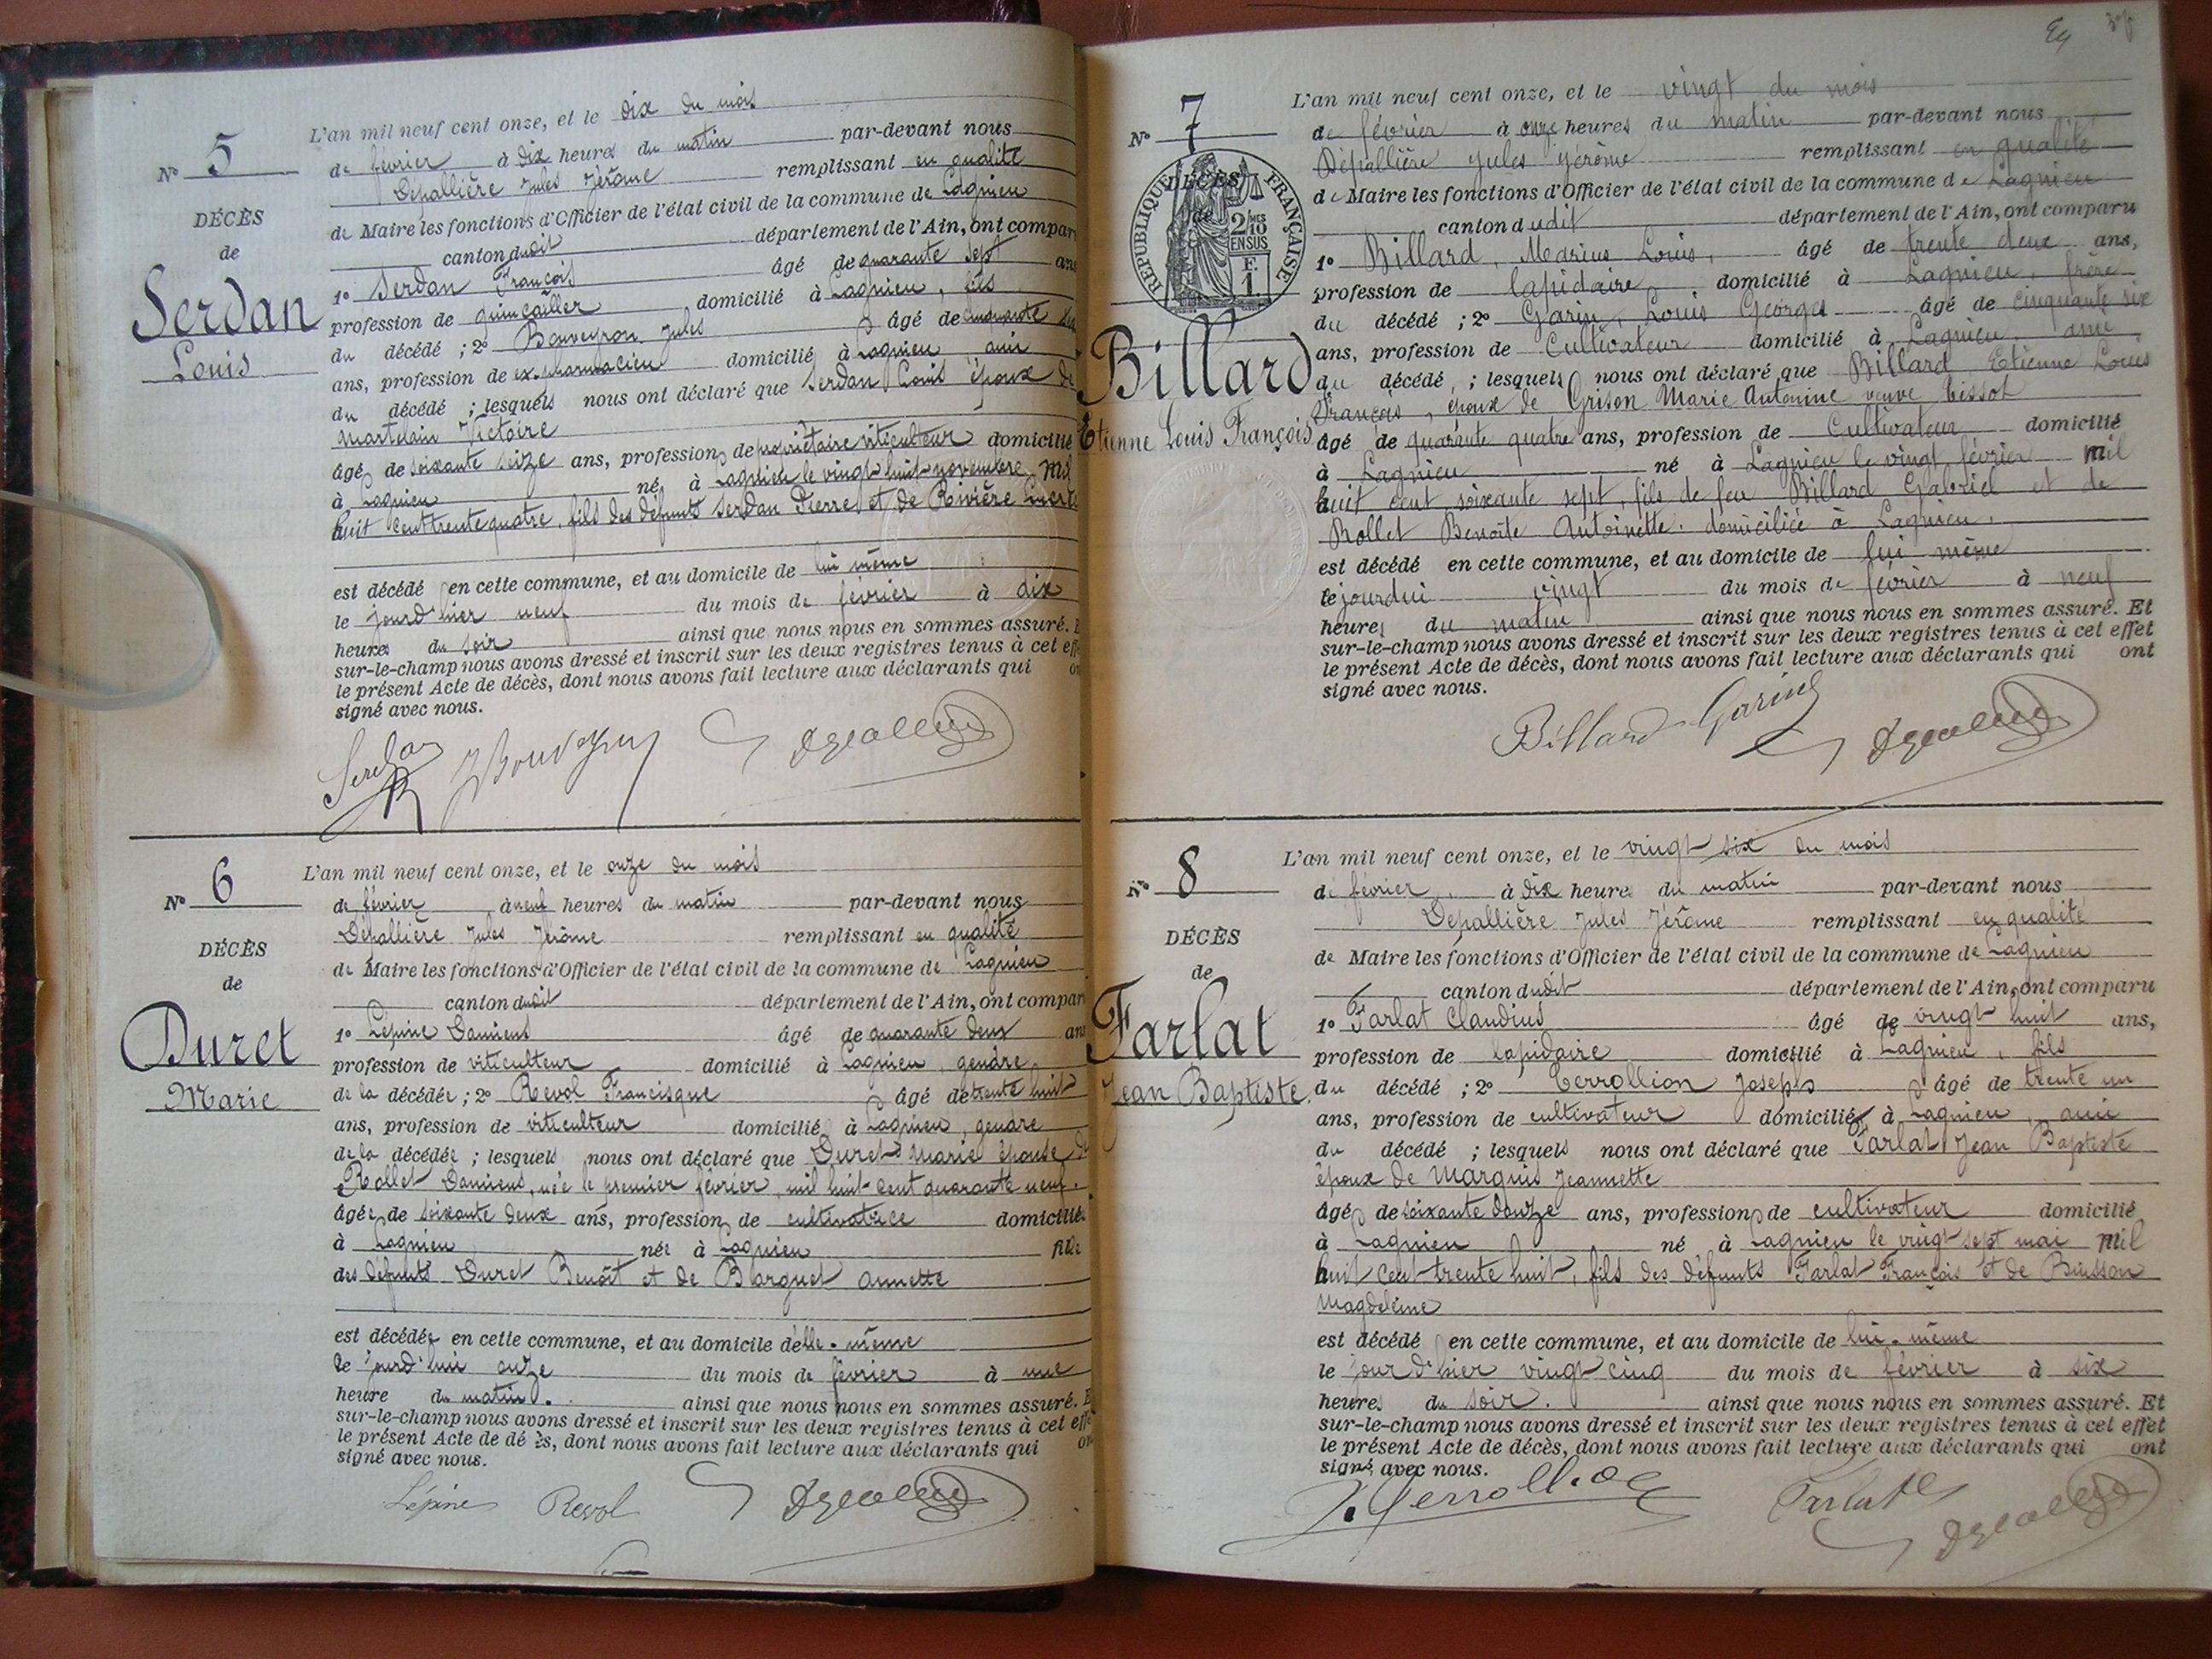 L'an mil neuf cent onze, et le dix du mois
No 5
de février à dix heures du matin par-devant nous
Dépallière Jules Jérôme remplissant en qualité
DÉCÈS
de Maire les fonctions d'Officier de l'état civil de la commune de Lagnieu
de
canton dudit département de l'Ain, ont compar
Serdan
1o Serdan François âgé de quarante sept ans
profession de quincailler domicilié à Lagnieu, fils
Louis
du décédé ; 2o Bouveyron Jules âgé de cinquante
ans, profession de ex-pharmacien domicilié à Lagnieu ami
du décédé ; lesquels nous ont déclaré que Serdan Louis époux de
Martelain Victoire
âgé de soixante seize ans, profession de propriétaire viticulteur domicilié
à Lagnieu né à Lagnieu le vingt huit novembre mil
huit cent trente quatre, fils des défunts Serdan Pierre et de Rivière
est décédé en cette commune, et au domicile de lui même
le jourd'hier neuf du mois de février à dix
heures du soir ainsi que nous nous en sommes assuré. E
sur-le-champ nous avons dressé et inscrit sur les deux registres tenus à cet eff
le présent Acte de décès, dont nous avons fait lecture aux déclarants qui on
signé avec nous.
Serdan JBouveyron
L'an mil neuf cent onze, et le onze du mois
No 6
de février à neuf heures du matin par-devant nous
Dépallière Jules Jérôme remplissant en qualité
DÉCÈS
de Maire les fonctions d'Officier de l'état civil de la commune de Lagnieu
de
canton dudit département de l'Ain, ont compar
Duret
1o Lépine Damiens âgé de quarante deux an
profession de viticulteur domicilié à Lagnieu, gendre
Marie
de la décédée ; 2o Revol Francisque âgé de trente huit
ans, profession de viticulteur domicilié à Lagnieu, gendre
de la décédée ; lesquels nous ont déclaré que Duret Marie épouse de
Rollet Damiens, née le premier février, mil huit cent quarante neuf.
âgée de soixante deux ans, profession de cultivatrice domiciliée
à Lagnieu née à Lagnieu fille
des défunts Duret Benoît et de Barquet Annette
est décédée en cette commune, et au domicile d'elle-même
le jourd'hui onze du mois de février à une
heure du matin. ainsi que nous nous en sommes assuré. E
sur-le-champ nous avons dressé et inscrit sur les deux registres tenus à cet effe
le présent Acte de décès, dont nous avons fait lecture aux déclarants qui on
signé avec nous.
Lépine Revol
L'an mil neuf cent onze, et le vingt du mois
No 7
de février à onze heures du matin par-devant nous
Dépallière Jules Jérôme remplissant en qualité
DÉCÈS
de
RÉPUBLIQUE FRANÇAISE
2/10 MES EN SUS
F. 1.
de Maire les fonctions d'Officier de l'état civil de la commune de Lagnieu
canton dudit département de l'Ain, ont comparu
1o Billard, Marius Louis, âgé de trente deux ans,
profession de lapidaire domicilié à Lagnieu, frère
du décédé ; 2o Garin, Louis Georges âgé de cinquante six
Billard
ans, profession de Cultivateur domicilié à Lagnieu, ami
du décédé ; lesquels nous ont déclaré que Billard Etienne Louis
François, époux de Grison Marie Antonine veuve Tissot
Etienne Louis François
âgé de quarante quatre ans, profession de Cultivateur domicilié
à Lagnieu né à Lagnieu le vingt février mil
huit cent soixante sept, fils de feu Billard Gabriel et de
Rollet Benoîte Antoinette. domiciliée à Lagnieu.
est décédé en cette commune, et au domicile de lui même
le jourdui vingt du mois de février à neuf
heures du matin ainsi que nous nous en sommes assuré. Et
sur-le-champ nous avons dressé et inscrit sur les deux registres tenus à cet effet
le présent Acte de décès, dont nous avons fait lecture aux déclarants qui ont
signé avec nous.
Billard Garin
L'an mil neuf cent onze, et le vingt six du mois
No 8
de février à dix heures du matin par-devant nous
Dépallière Jules Jérôme remplissant en qualité
DÉCÈS
de Maire les fonctions d'Officier de l'état civil de la commune de Lagnieu
de
canton dudit département de l'Ain, ont comparu
Farlat
1o Farlat Claudius âgé de vingt huit ans,
profession de lapidaire domicilié à Lagnieu, fils
Jean Baptiste
du décédé ; 2o Cerrollion Joseph âgé de trente un
ans, profession de cultivateur domicilié à Lagnieu, ami
du décédé ; lesquels nous ont déclaré que Farlat Jean Baptiste
époux de Marquis Jeannette
âgé de soixante douze ans, profession de cultivateur domicilié
à Lagnieu né à Lagnieu le vingt sept mai mil
huit cent trente huit, fils des défunts Farlat François et de Buisson
Magdeleine
est décédé en cette commune, et au domicile de lui-même
le jourd'hier vingt cinq du mois de février à six
heures du soir. ainsi que nous nous en sommes assuré. Et
sur-le-champ nous avons dressé et inscrit sur les deux registres tenus à cet effet
le présent Acte de décès, dont nous avons fait lecture aux déclarants qui ont
signé avec nous.
Farlat